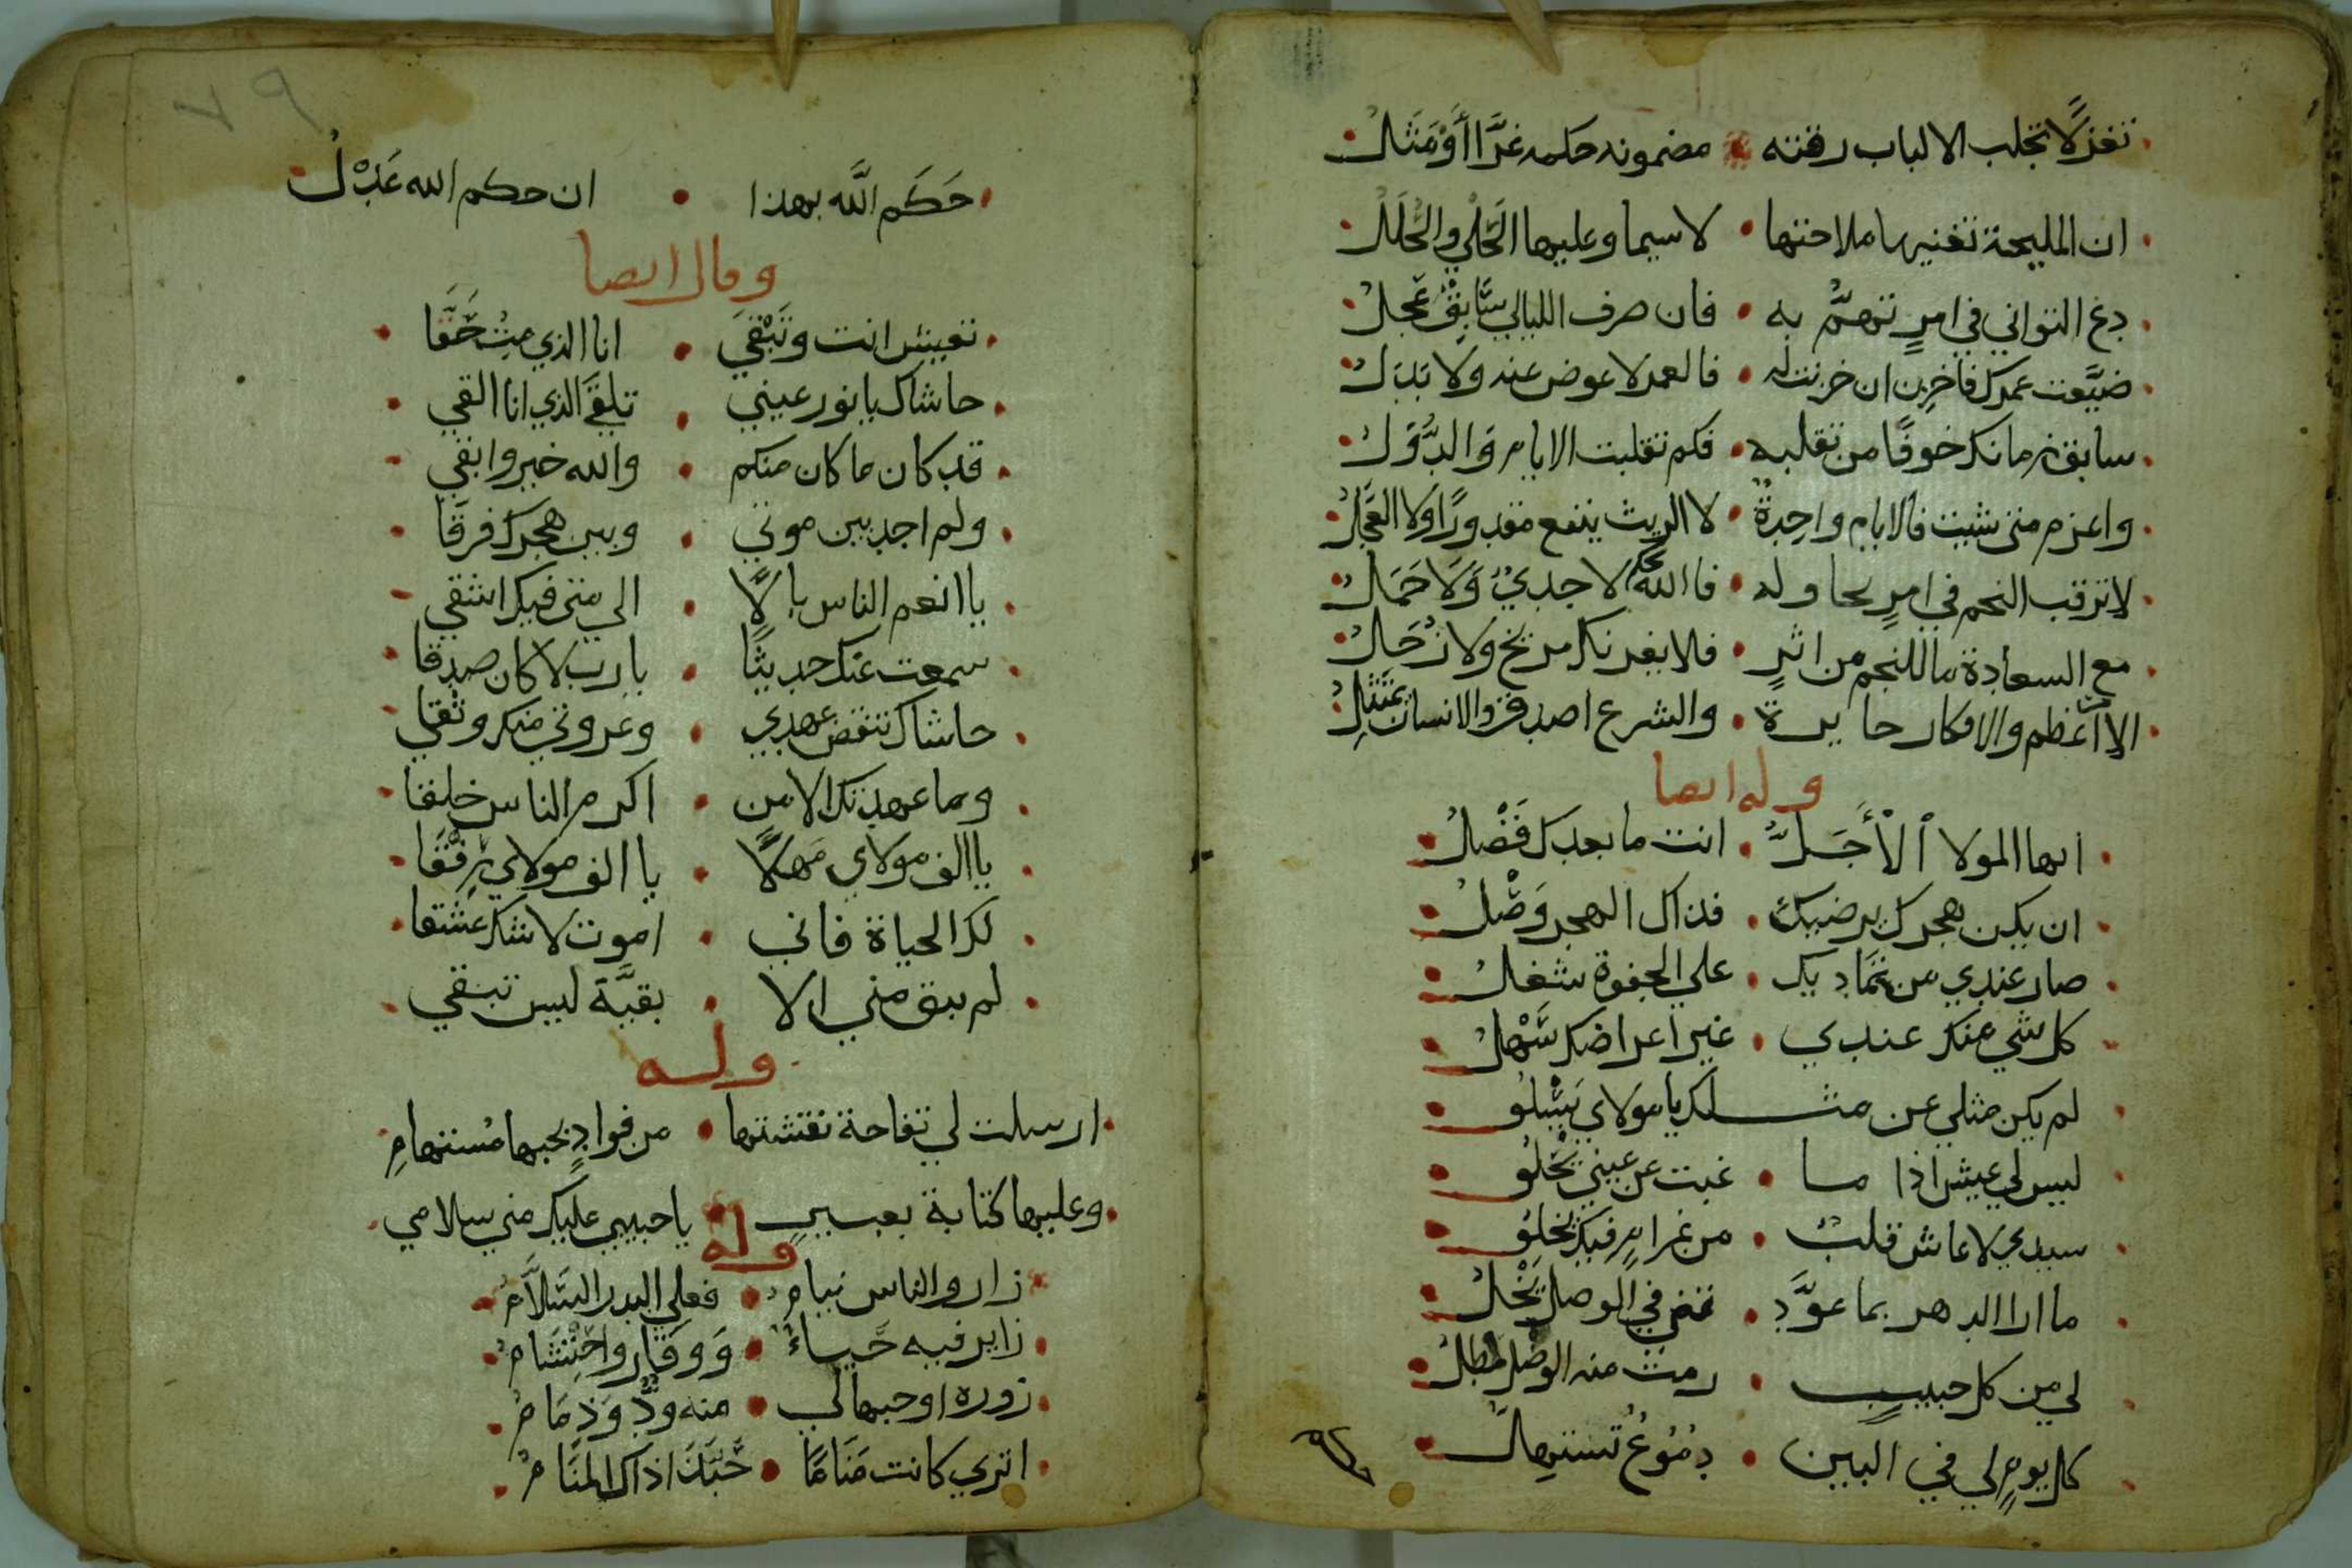 تغزلًا تجلب الالباب رقته • مضمونه حكمه غرَّا أَوْمَثَلُ
ان المليحة تغنيها ملاحتها • لا سيما وعليها الحَلْيُ والحُلَلُ
دع التواني في امرٍ تهمُّ به • فان صرف الليالي سَّابِقٌ عَجِلُ
ضيَّعت عمرك فاحزن ان حزنت له • فالعمر لا عوض عنه ولا بَدَلُ
سابق زمانك خوفًا من تقلبه • فكم تقلبت الايام وَالدُّوَلُ
واعزم متى شيت فالايام واحِدةٌ • لا الريث ينفع مقدورًا وَلا العَجَلُ
لا ترقب النجم في امرٍ تحاوله • فالله يفعل لا جديٌ وَلَا حَمَلُ
مع السعادة ما للنجم من اثرٍ • فلا يغرنك مريخ ولا زُحَلُ
الا اعظم والافكار حايرة • والشرع اصدق والانسان يمتَثِلُ
وله ايضا
ايها المولا ٱلْأَجَلُّ • انت ما بعدك فَضْلُ
ان يكن هجرك يرضيك • فذاك الهجر وَصْلُ
صار عندي من تمَاديك • على الجفوة شغلُ
كل شي منك عندي • غير اعراضك سَّهْلُ
لم يكن مثلي عن مثلك يا مولاي يَسْلُو
ليس لي عيش اذا ما • غبت عن عيني يَحْلُو
سيدي لا عاش قلبٌ • من غرامٍ فيك يخلُو
ما ارا الدهر بما عوَّد • فض في الوصل يَبْخَلُ
لي من كل حبيبٍ • رمتُ منه الوصْل مطلُ
كل يومٍ لي في البين • دمُوعٌ تستهِلُ
حَكَم اللَّه بهذا • ان حكم الله عَدْلُ
وقال ايضا
تعيش انت وتَبْقَى • انا الذي مِتُّ حَقَّا
حاشاك يا نور عيني • تلقَى الذي انا القى
قد كان ما كان منكم • والله خير وابقى
ولم اجد بين موتي • وبين هجرك فرقَا
يا انعم الناس بالًا • الى متى فيك اشقى
سمعت عنك حديثًا • يا رب لا كان صدقا
حاشاك تنقض عهدي • وعروتي منك وثقى
وما عهدتك الا من • اكرم الناس خلقا
يا الف مولاي مَهلًا • يا الف مولاي رِفْقَا
لك الحياة فاني • اموت لا شك عشقا
لم يبق مني الا • بقيَّة ليس تبقى
وله
ارسلت لي تفاحة نقشتها • من فوادٍ بحبها مُستهامِ
وعليها كتابة بعبيرٍ • يا حبيبي عليك مني سلامي
وله
زار والناس نيامُ • فعلى البدر السَّلَامُ
زاير فيه حَيَاءٌ • وَوَقَار واحْتِشَامُ
زوره اوجبها لي • منه ودٌّ وَذِمَامُ
اترى كانت مَنَامًا • حَبَّذَا ذاك المنَامُ